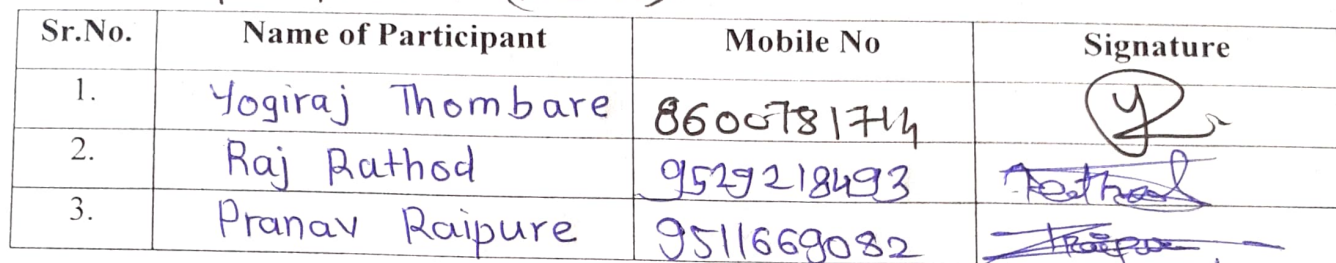 Sr.No. Name of Participant Mobile No Signature
1. Yogiraj Thombare 8600781714
2. Raj Rathod 9529218493 Rathod
3. Pranav Raipure 9511669082